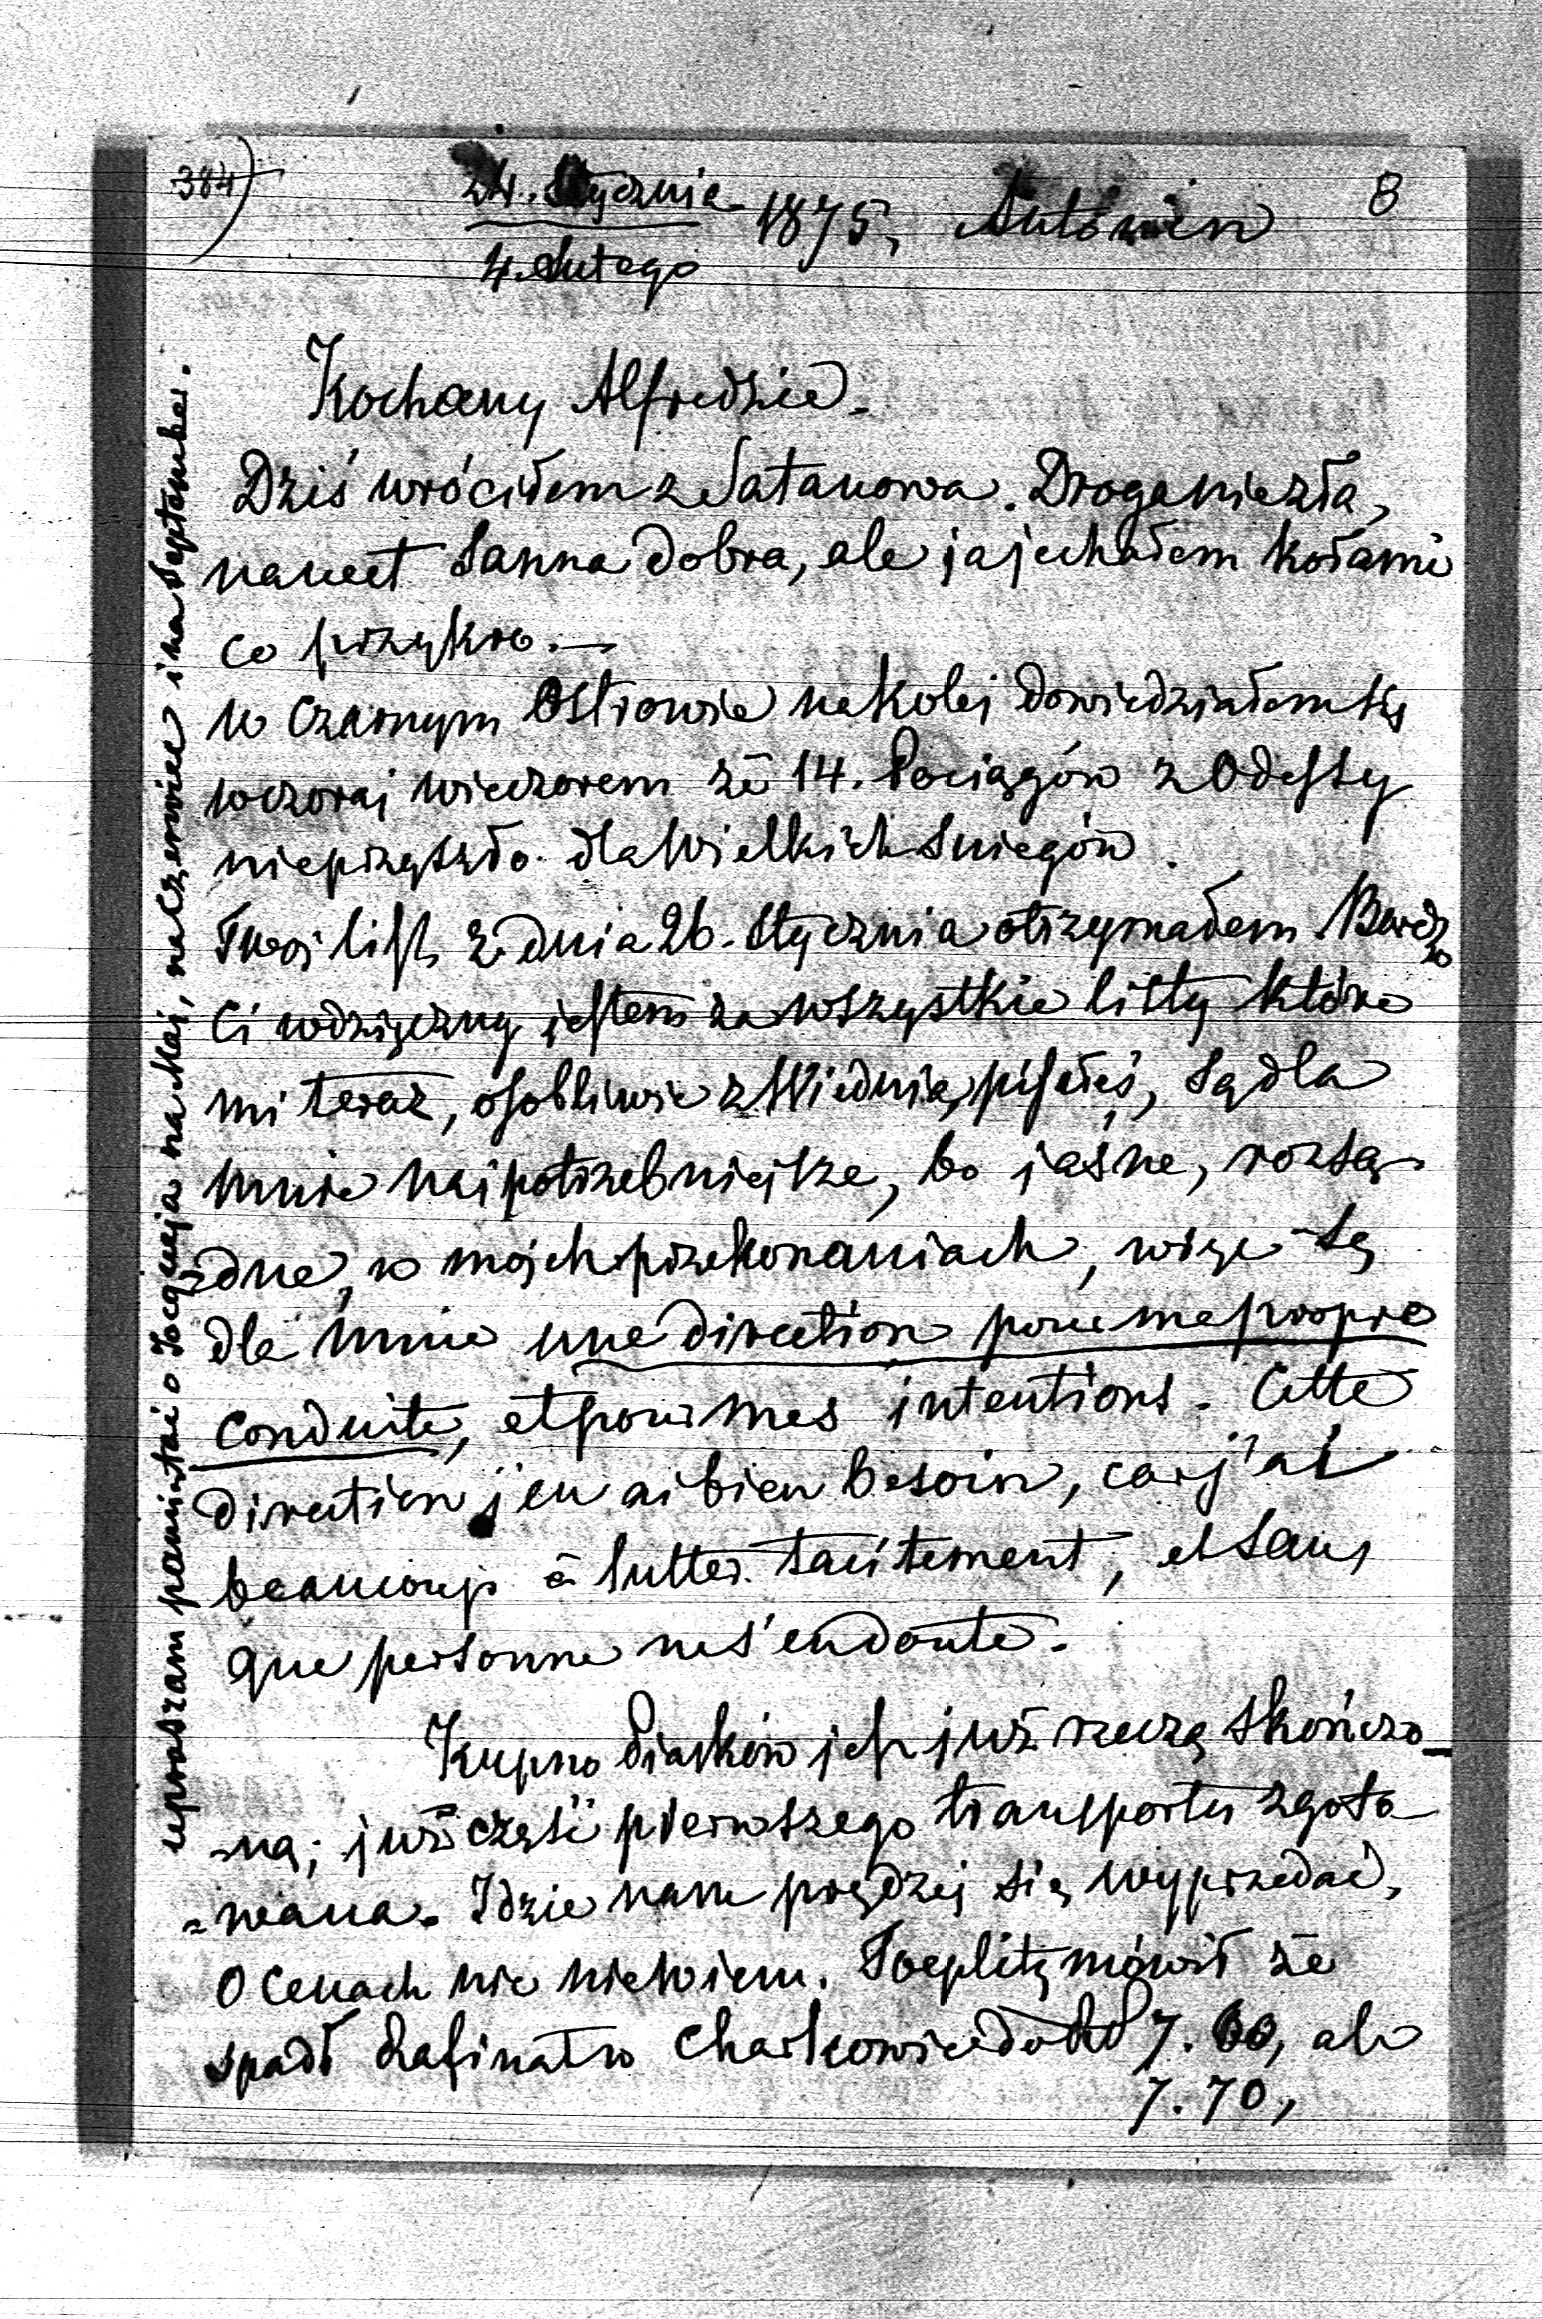 384)
24. Stycznia 1875, Antonin
8
4. Lutego
Kochany Alfredzie.
Dziś wróciłem z Satanowa. Droga niezła,
nawet Sanna dobra, ale ja jechałem kołami
co przykro. —
w Czarnym Ostrowie na kolei dowiedziałem się
wczoraj wieczorem że 14. Pociągów z Odessy
nieprzyszło dla wielkich śniegów.
Twoj list z dnia 26. Stycznia otrzymałem. Bardzo
Ci wdzięczny jestem za wszystkie listy które
mi teraz, osobliwie z Wiednia, pisałeś, są dla
mnie najpotrzebniejsze, bo jaśne, rozsą-
dne, w mojch przekonaniach, więc są
dla mnie une direction pour ma propre
conduite, et pour mes intentions. Cette
direction j'en ai bien besoin, car j'ai
beaucoup à lutter tacitement, et sans
que personne ne s'en doute.
Kupno Piasków jest już rzeczą skończo-
-ną; już część pierwszego transportu zgoto-
=wana. Idzie nam prędzej się wyprzedać,
O Cenach nic niewiem. Toeplitz mówił że
spadł Rafinat w Charkowie do 7. 60, ale
7. 70,
upraszam pamiętać o Jacqueja na Maj, na Czerwiec i na Septembra.